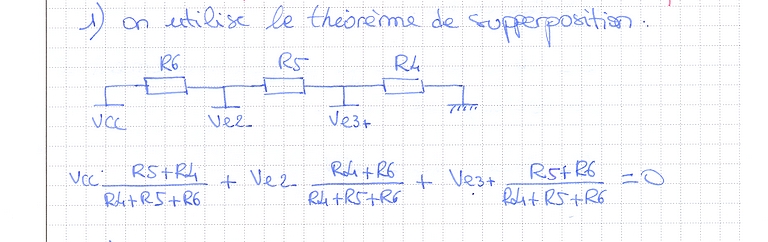 1) on utilise le théorème de supperposition.
R6 R5 R4
VCC Ve2- Ve3+
VCC R5+R4/R4+R5+R6 + Ve2- R4+R6/R4+R5+R6 + Ve3+ R5+R6/R4+R5+R6 = 0